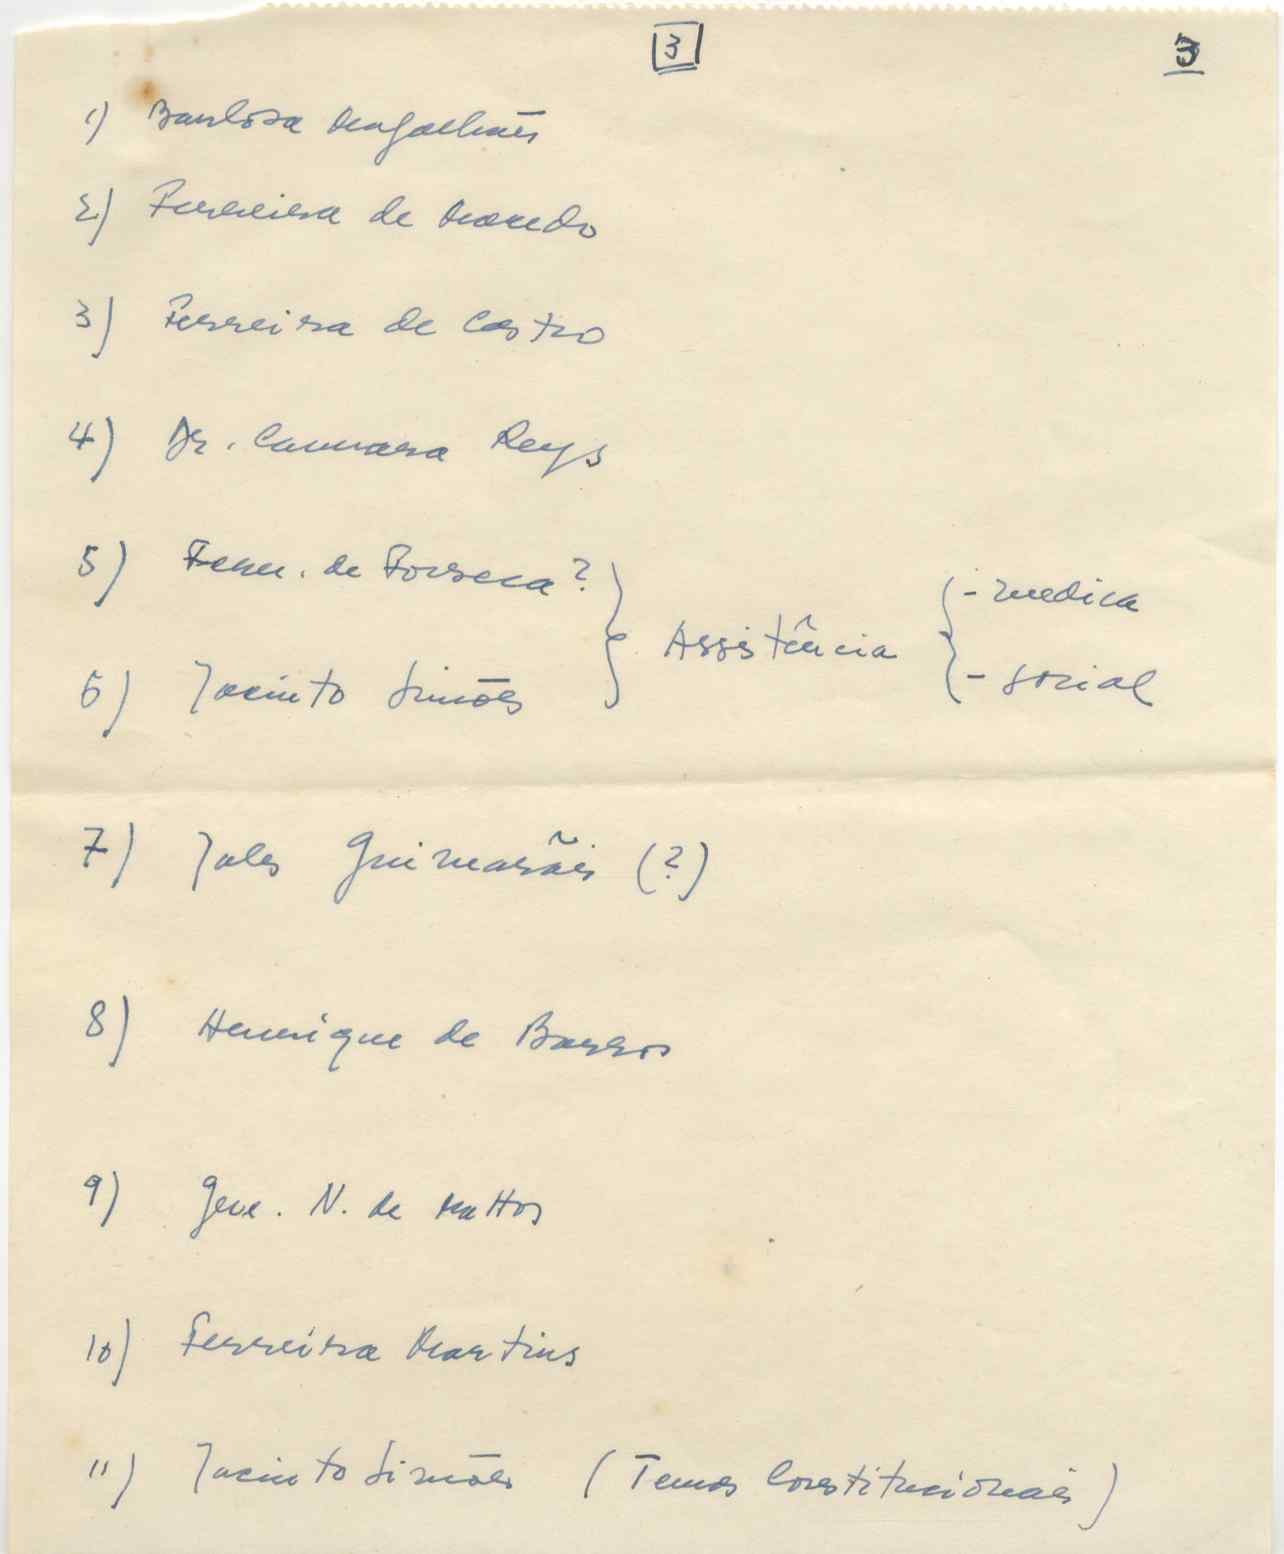 3 3
1) Barbosa Magalhães
2) Ferreira de Macedo
3) Ferreira de Castro
4) Dr. Camara Reys
5) Fern. de Fonseca ?
- medica
Assistência
6) Jacinto Simões
- social
7) Jales Guimarãis (?)
8) Henrique de Barros
9) Gene. N. de Mattos
10) Ferreira Martins
11) Jacinto Simões (Temas Constitucionais)